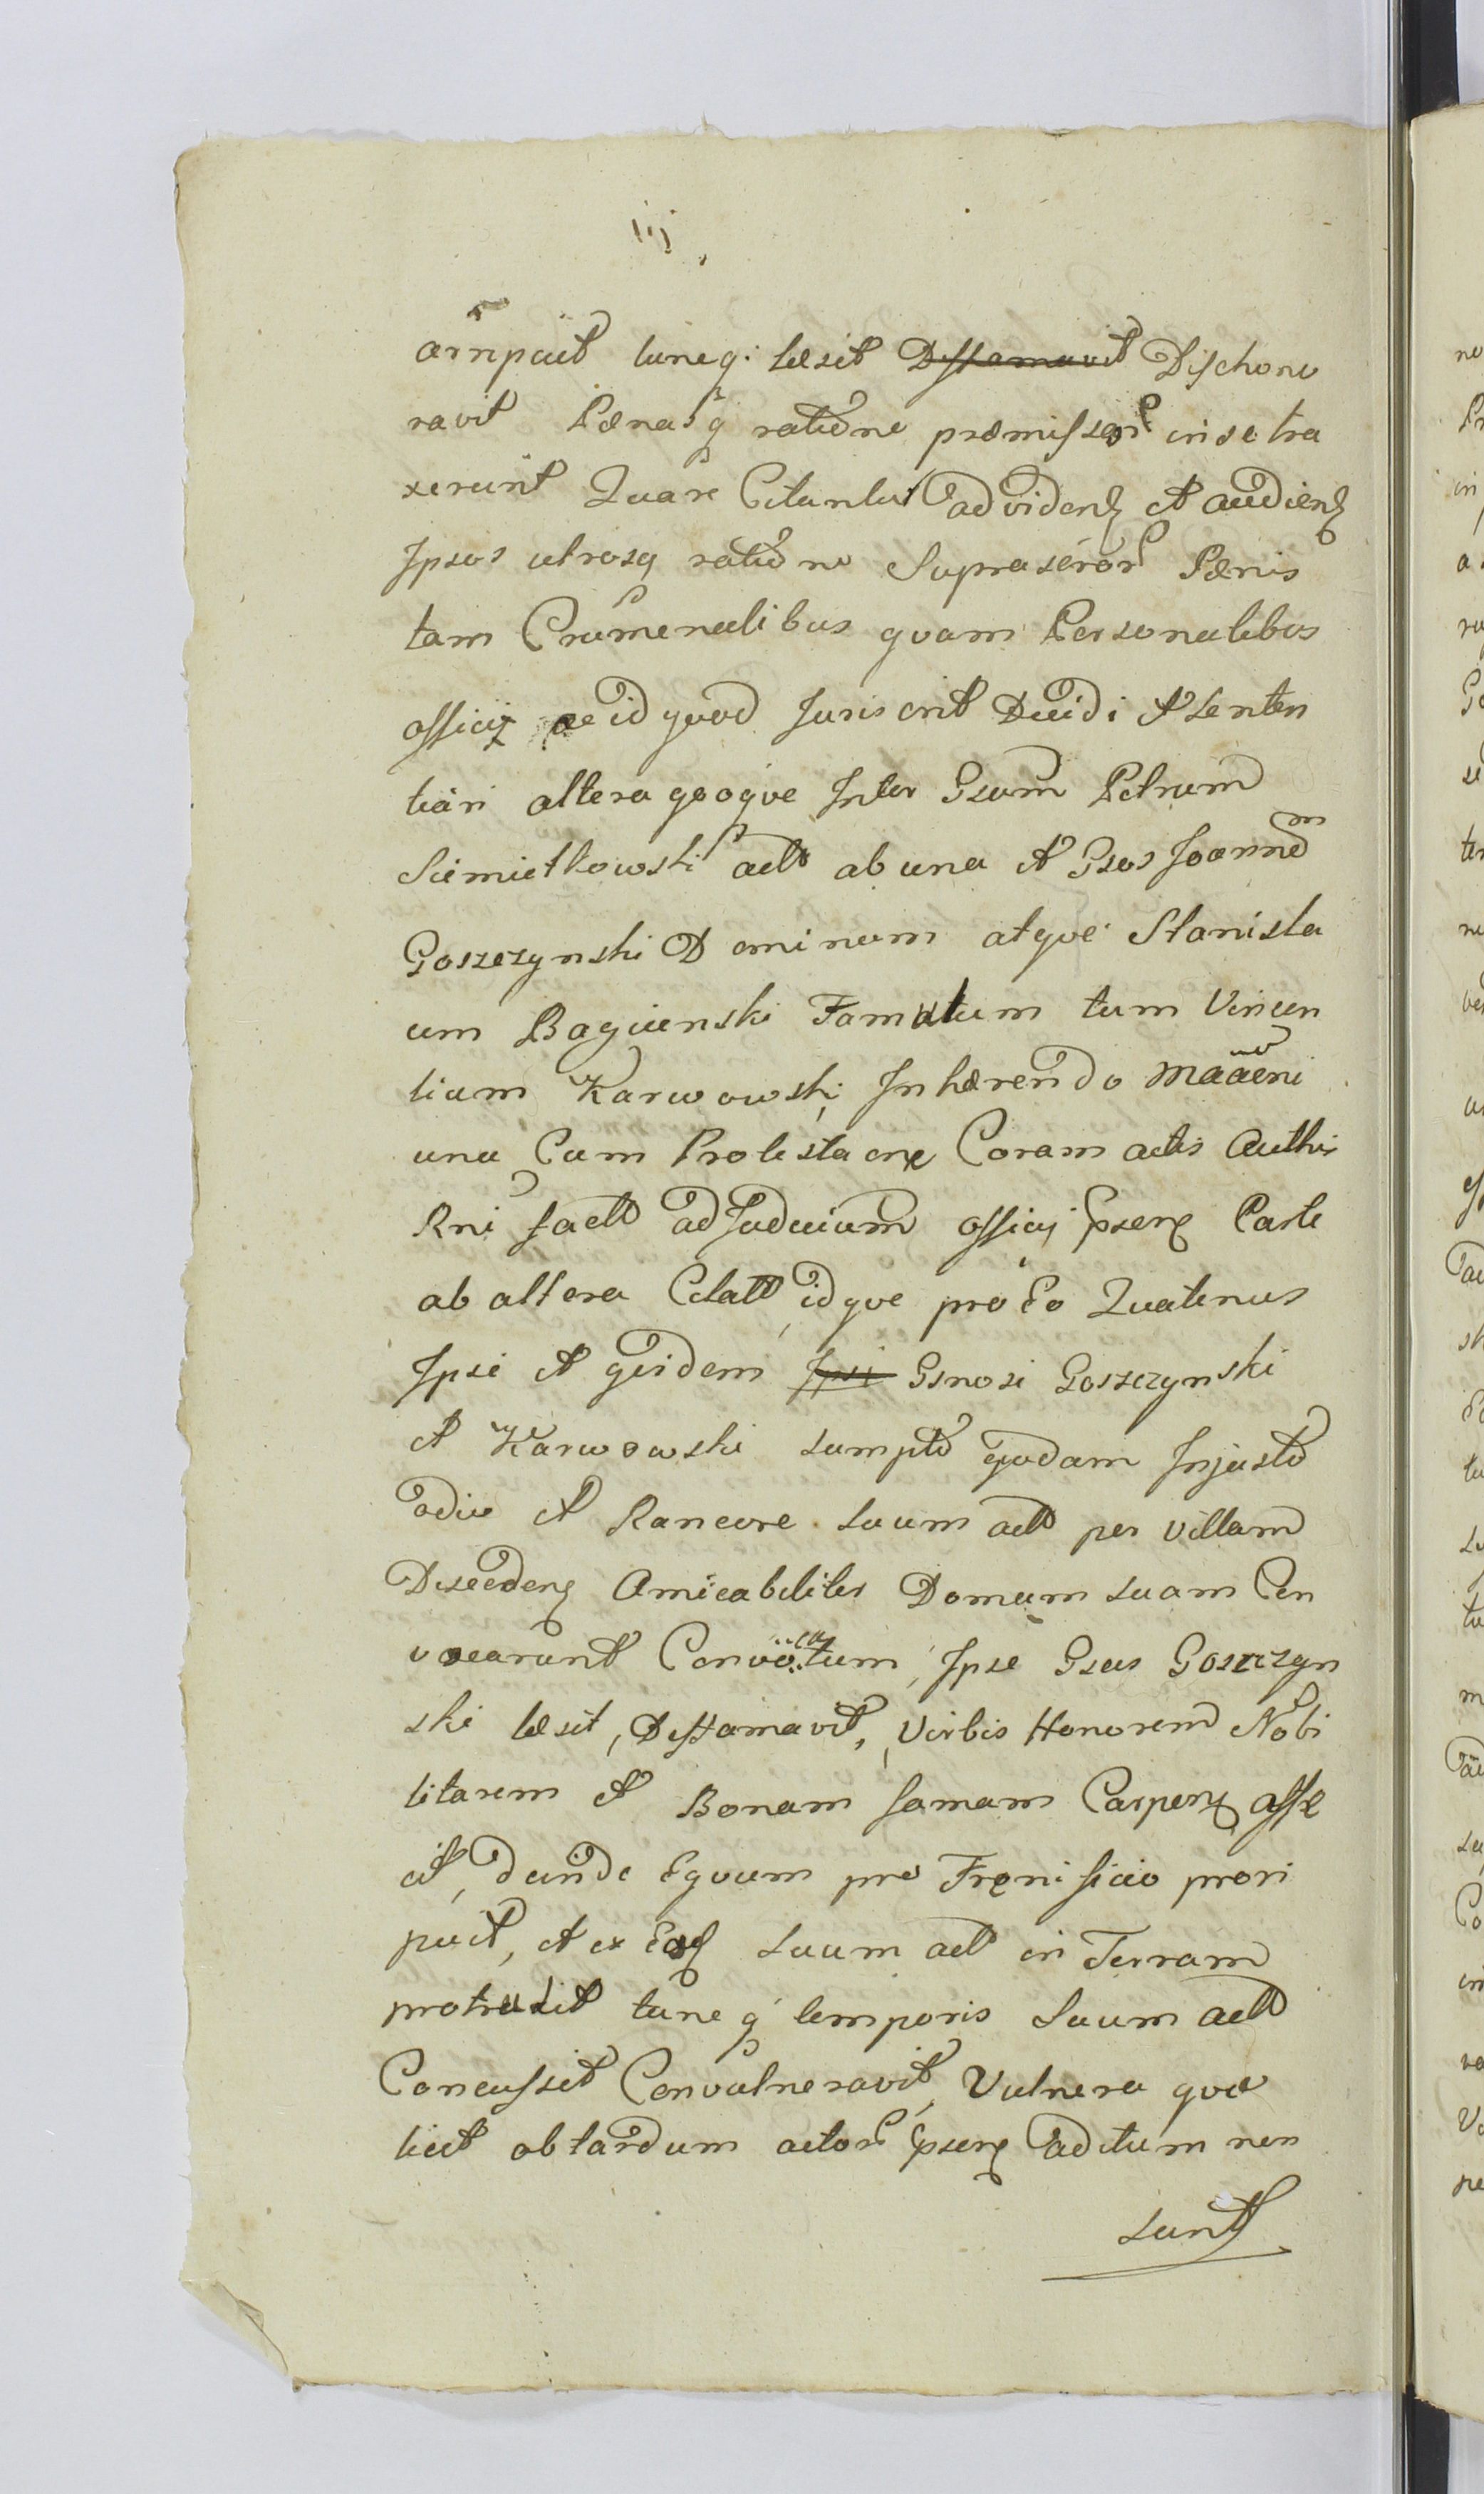 arripuit tuncq: læsit D̶e̶f̶f̶a̶m̶a̶v̶i̶t̶ Dishono
ravit Pænasq ratione præmissor in se tra
xerunt Quare Citantur ad videnđ et audienđ
Ipsos utrosq ratione Suprascror Pænis
tam Crumenalibus quam Personalibus
afficij ac id quod Juris erit Decidi et Senten
tiari altera quoque Inter Gsum Petrum
Siemietkowski act ab una et Gsos Joannem
Goszczynski Dominum atque Stanisla
um Bagienski Famulum tum Vincen
tium Karwowski Inhærendo
una Cum Protestaone Coram actis Authis
Rni fact ad Judicium officij pseng Parte
ab altera Citatt idque pro Eo Quatenus
Ipsi et quidem I̶p̶s̶i̶ Gsnosi Goszczynski
et Karwowski sumpto quodam Injusto
odio et Rancore suum act per Villam
Discedeng Amicabiliter Domum suam Con
vocarunt Convocatum, Ipse Gsus Goszczyn
ski læsit, Deffamavit, Verbis Honorem Nobi
litarem et Bonam famam Carpeng affe
cit, deinde Equum pro Frænificio prori
puit, et ex Eoq suum act in Terram
protrusit tunc q temporis Suum act
Concussit Convulneravit, Vulnera quæ
licet ob tardum actor pseng aditum non
sunt